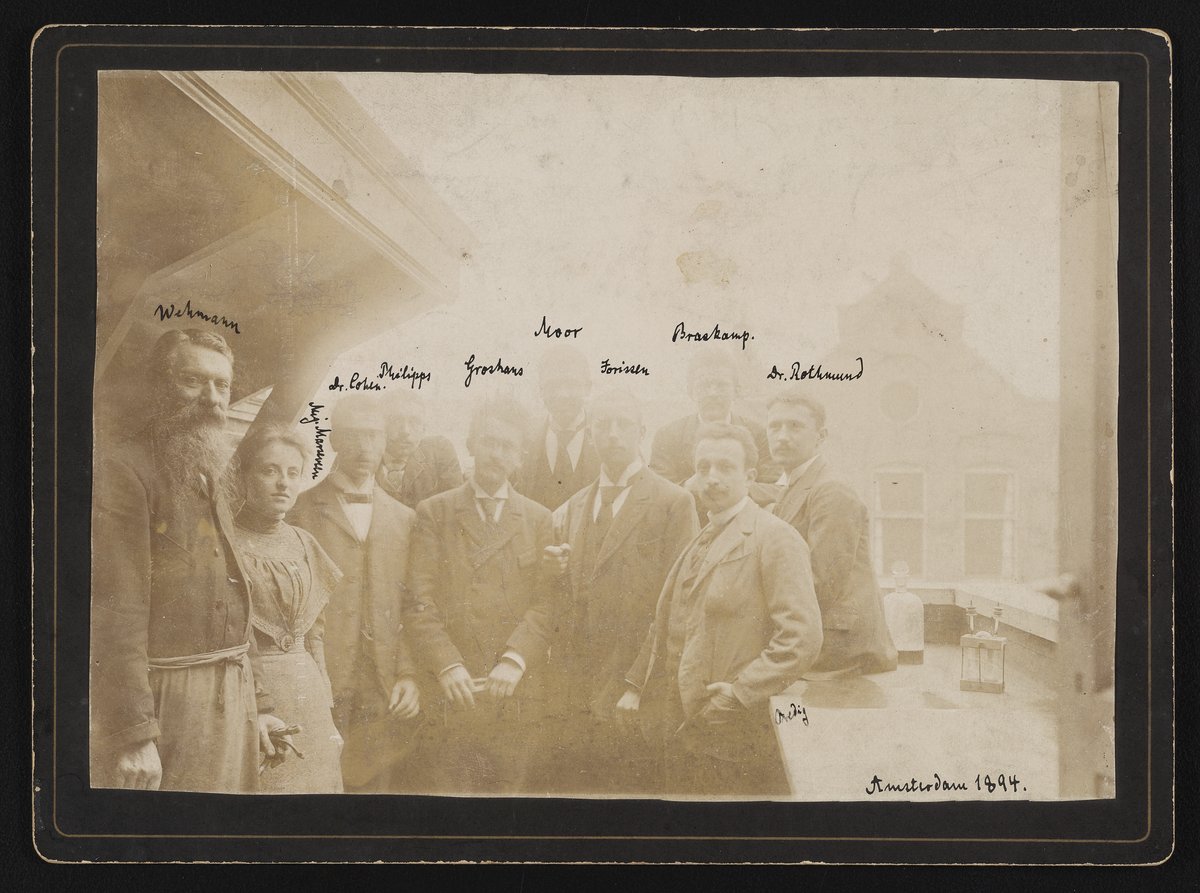 Wehmann
Dr. Cohen.
Philipps
Groshans
Moor
Jorissen
Braskamp.
Dr. Rothmund
Bredig
Amsterdam 1894.